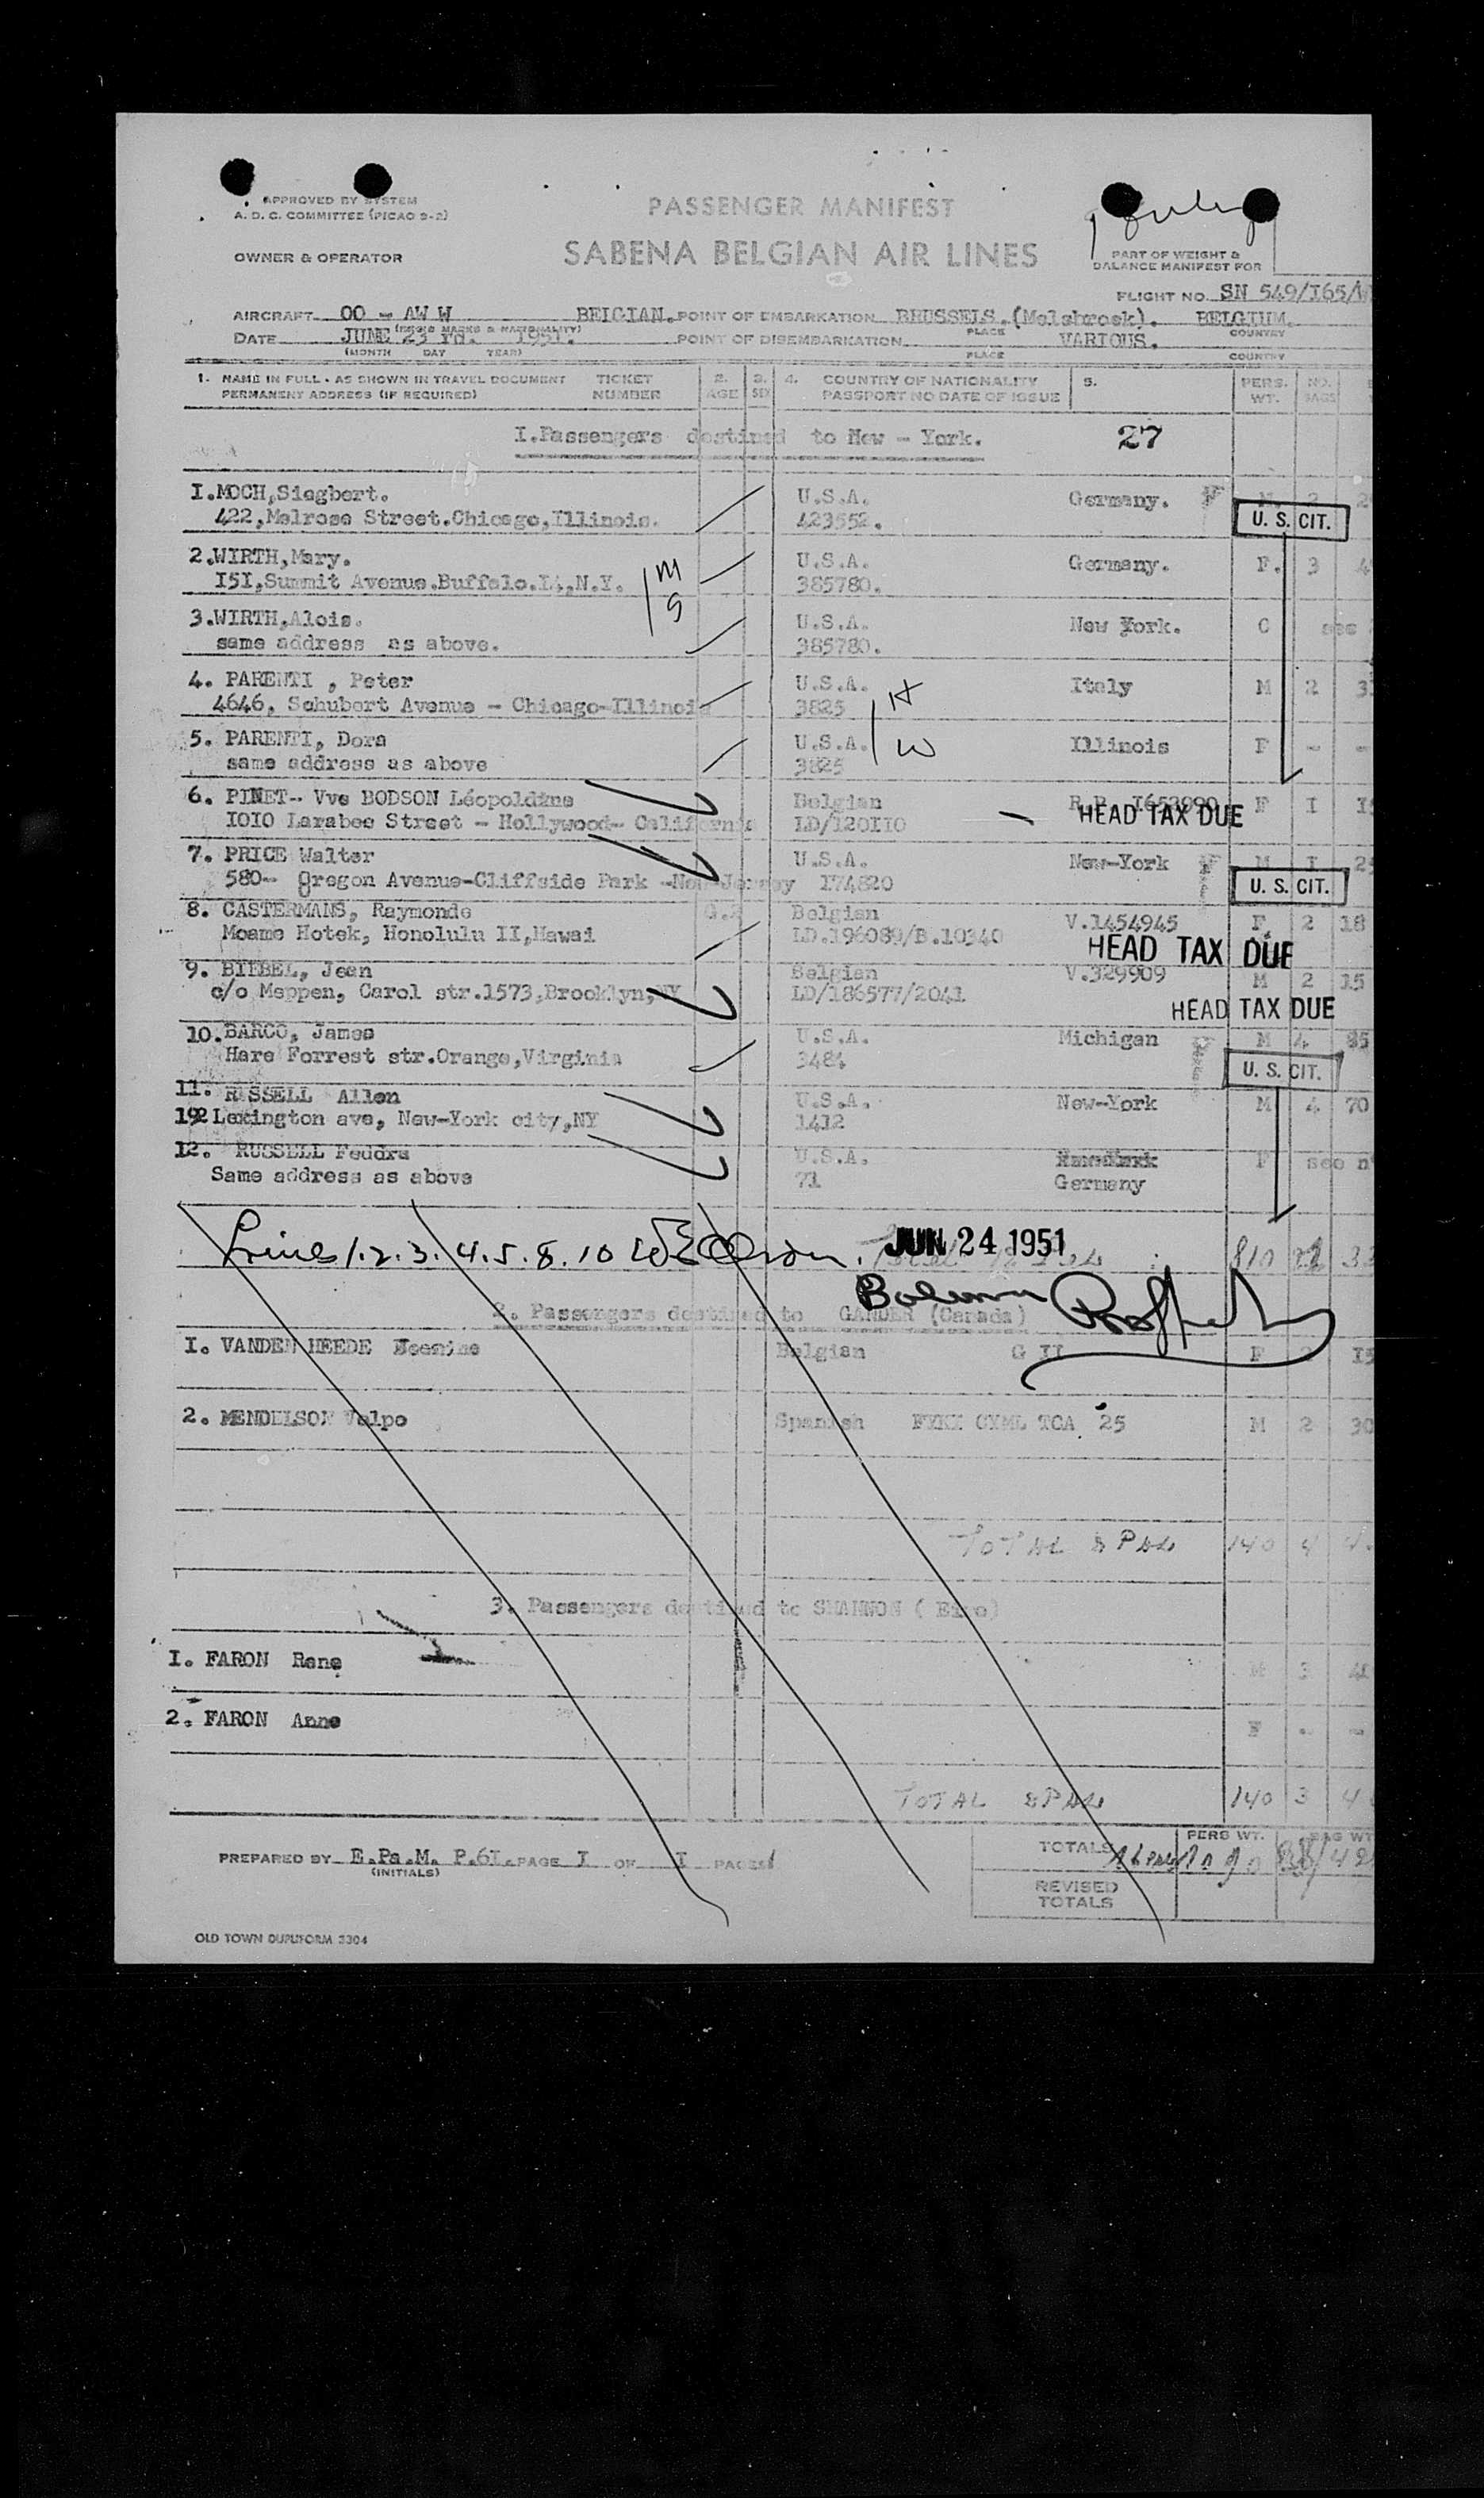 APPROVED BY SYSTEM
A. D. C. COMMITTEE (PICAO 9-2)
OWNER & OPERATOR
PASSENGER MANIFEST
SABENA BELGIAN AIR LINES
PART OF WEIGHT &
BALANCE MANIFEST FOR
FLIGHT NO. SN 549/I65/
AIRCRAFT OO - AW W BELGIAN. POINT OF EMBARKATION BRUSSELS.(Melsbroek). BELGIUM.
(REGIS MARKS & NATIONALITY) PLACE COUNTRY
DATE JUNE 23 rd. 1951. POINT OF DISEMBARKATION VARIOUS.
(MONTH DAY YEAR) PLACE COUNTRY
1. NAME IN FULL - AS SHOWN IN TRAVEL DOCUMENT TICKET 2. 3. 4. COUNTRY OF NATIONALITY 5. PERS. NO.
PERMANENT ADDRESS (IF REQUIRED) NUMBER AGE SEX PASSPORT NO DATE OF ISSUE WT. BAGS
I.Passengers destined to New - York. 27
I.MOCH,Siegbert. U.S.A. Germany. M 2
422,Melrose Street.Chicago,Illinois. 423552. U. S. CIT.
2.WIRTH,Mary. U.S.A. Germany. F. 3
I5I,Summit Avenue.Buffalo.I4,N.Y. M 385780.
S
3.WIRTH,Alois. U.S.A. New York. C see
same address as above. 385780.
4. PARENTI , Peter U.S.A. H Italy M 2
4646, Schubert Avenue - Chicago-Illinois 3825
5. PARENTI, Dora U.S.A. W Illinois F - -
same address as above 3825
6. PINET-- Vve BODSON Léopoldine Belgian R.P. I653990 F I
IOIO Larabee Street - Hollywood- California LD/I20II0 HEAD TAX DUE
7. PRICE Walter U.S.A. New-York M I
580-- Oregon Avenue-Cliffside Park -New Jersey I74820 U. S. CIT.
8. CASTERMANS, Raymonde Belgian V.1454945 F. 2 18
Moame Hotek, Honolulu II,Hawai LD.196089/B.10340 HEAD TAX DUE
9. BIEBEL, Jean Belgian V.329909 M 2 15
c/o Meppen, Carol str.1573,Brooklyn,NY LD/186577/2041 HEAD TAX DUE
10. BARCO, James U.S.A. Michigan M 4
Hare Forrest str.Orange,Virginia 3484 U. S. CIT.
11. RUSSELL Allen U.S.A. New-York M 4 70
192 Lexington ave, New-York city,NY 1412
12. RUSSELL Feodra U.S.A. F see n°
Same address as above 71 Germany
Lines 1.2.3.4.5.8.10 JUN 24 1951 810
2. Passengers destined to GANDER (Canada)
I. VANDEN HEEDE Belgian G II F 2 I5
2. MENDELSON Volpo Spanish TCA 25 M 2 30
TOTAL 2 PAX 140 4
3. Passengers destined to SHANNON ( Eire)
I. FARON Rene M 3
2. FARON Anne F - -
TOTAL 2 PAX 140 3
PREPARED BY E.Pa.M. P.6I. PAGE I OF I PAGES
(INITIALS)
TOTALS PERS WT. BAG WT
REVISED
TOTALS
OLD TOWN DUPLIFORM 3304